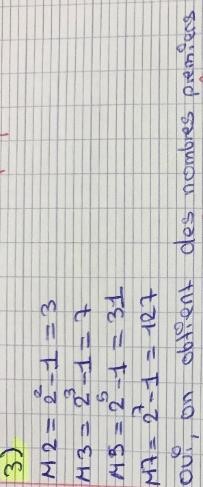 3)
M2 = 2² - 1 = 3
M3 = 2³ - 1 = 7
M5 = 2⁵ - 1 = 31
M7 = 2⁷ - 1 = 127
oui, on obtient des nombres premiers